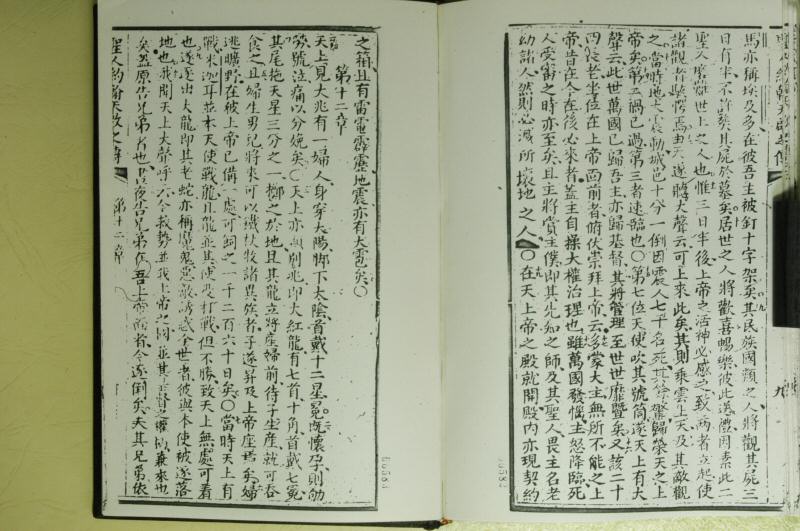 馬亦稱埃及多在彼吾主被釘十字架矣其民族國類之人將觀其屍三
日有半不許葬其屍於墓矣居世之人將歡喜暢樂彼此送禮因素此二
聖人磨難世上之人也惟三日半後上帝之活神必感之致兩者立起使
諸觀者驚愕焉由天遂將大聲云可上來此矣其則乘雲上天及其敵觀
之當時地大震動城邑十分一倒因震人七千名死其餘驚歸榮天之上
帝矣第二禍已過第三者速臨也〇第七位天使吹其號筒遂天上有大
聲云此世萬國已歸吾主亦歸基督其將管理至世世靡暨矣又該二十
四長老坐位在上帝面前者俯伏崇拜上帝云多蒙大主無所不能之上
帝昔在今在後必來者蓋主自操大權治理也雖萬國發惱主怒降臨死
人受審之時亦至矣且主將賞主僕即其先知之師及其聖人畏主名老
幼諸人然則必滅所壞地之人〇在天上帝之殿就開殿內亦現契約
之箱且有雷電霹靂地震亦有大雹矣〇
第十二章
天上見大兆有一婦人身穿太陽脚下太陰首戴十二星冕既懷孕則劬
勞號泣痛以分娩矣〇天上亦現別兆即大紅龍有七首十角首戴七冕
其尾拖天星三分之一擲之於地且其龍立將產婦前待子生產就可吞
食之且婦生男兒將來可以鐵杖牧諸異族者子遂昇及上帝座焉矣婦
逃曠野在彼上帝已備一處可飼之一千二百六十日矣〇當時天上有
戰米迦耳並本天使戰龍且龍並其使交打戰但不勝致天上無處可着
也遂逐出大龍即其老蛇亦稱魔鬼惡敵誘惑全世者彼與本使被逐落
地也我聞天上大聲呼云今救勢並我上帝之國並其基督之權
矣蓋原告兄弟者也晝夜告兄弟在吾上帝面者今逐倒矣夫其兄弟依
聖人約翰天啟之傳
第十二章